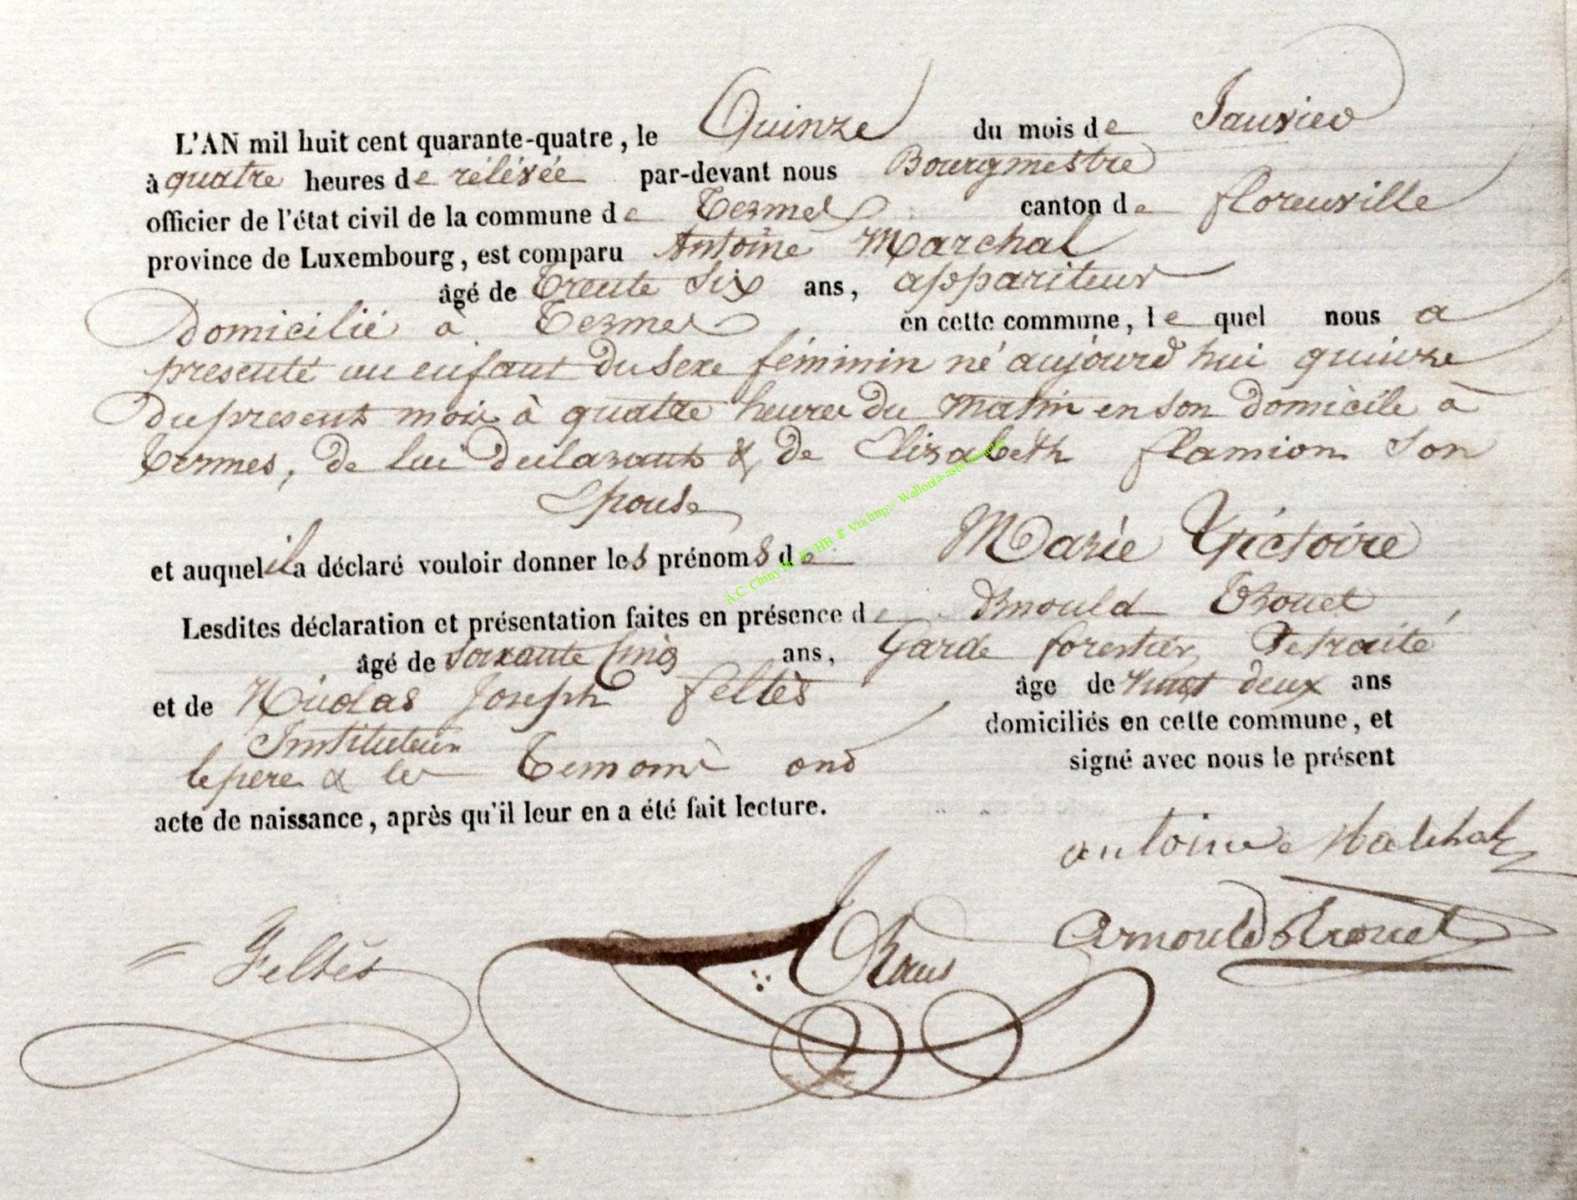 L'AN mil huit cent quarante-quatre, le Quinze du mois de Janvier
à quatre heures de rélévée par-devant nous Bourgmestre
officier de l'état civil de la commune de Termes canton de florenville
province de Luxembourg, est comparu Antoine Marchal
âgé de trente six ans, appariteur
Domicilié à Termes en cette commune, le quel nous a
presenté un enfant du sexe féminin né aujourd'hui quinze
Du present mois à quatre heures du matin en son domicile à
termes, de lui déclarant & de Elizabeth flamion son
Epouse
et auquel il a déclaré vouloir donner les prénoms de Marie Victoire
Lesdites déclaration et présentation faites en présence de Arnould Trouet,
âgé de soixante Cinq ans, Garde forestier, Retraité
et de Nicolas Joseph feltès âge de vingt deux ans
Instituteur domiciliés en cette commune, et
le pere & les Temoins ond signé avec nous le présent
acte de naissance, après qu'il leur en a été fait lecture.
antoine Malchal
Arnould Trouet
Feltès
A.C. Chiny